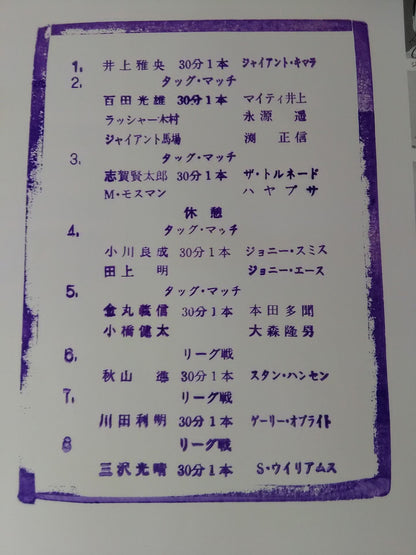 1. 井上雅央 30分1本 ジャイアント・キマラ
2. タッグ・マッチ
百田光雄 30分1本 マイティ井上
ラッシャー木村 永源遥
ジャイアント馬場 渕正信
3. タッグ・マッチ
志賀賢太郎 30分1本 ザ・トルネード
M・モスマン ハヤブサ
休憩
4. タッグ・マッチ
小川良成 30分1本 ジョニー・スミス
田上明 ジョニー・エース
5. タッグ・マッチ
金丸義信 30分1本 本田多聞
小橋健太 大森隆男
6. リーグ戦
秋山準 30分1本 スタン・ハンセン
7. リーグ戦
川田利明 30分1本 ゲーリー・オブライト
8 リーグ戦
三沢光晴 30分1本 S・ウイリアムス